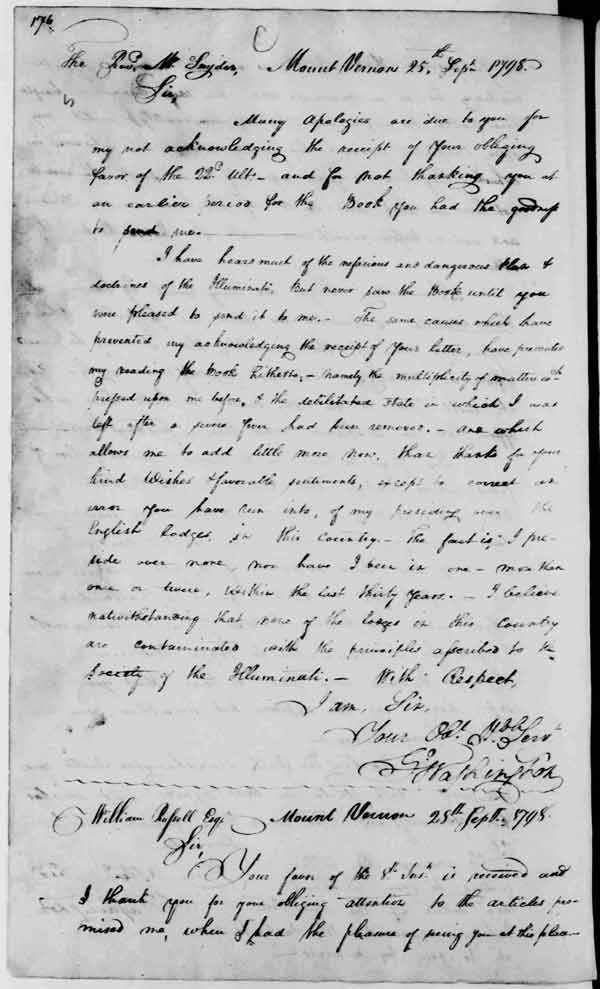 176.
The Revd. Mr. Snyder, Mount Vernon 25th Sepr. 1798.
Sir,
Many Apologies are due to you for
my not acknowledging the receipt of Your obliging
favor of the 22d. Ult.— and for not thanking you at
an earlier period for the Book you had the goodness
to send me.
I have heard much of the nefarious and dangerous Plan &
doctrines of the Illuminati, but never saw the Book until you
were pleased to send it to me.— The same causes which have
prevented my acknowledging the receipt of Your letter, have prevented
my reading the Book hitherto,— namely the multiplicity of matters wch.
pressed upon me before, & the debilitated state in which I was
left after a severe fever had been removed.— and which
allows me to add little more now, than thanks for your
kind Wishes & favorable sentiments, except to correct an
error you have run into, of my presiding over the
English lodges in this country.— The fact is, I pre-
side over none, nor have I been in one — more than
once or twice, within the last thirty Years.— I believe
notwithstanding that none of the lodges in this Country
are contaminated with the principles ascribed to the
Society of the Illuminati.— With Respect,
I am, Sir,
Your Obt. Hble Servt.
Go. Washington
William Russell Esq. Mount Vernon 28th Sept. 1798.
Sir,
Your favor of the 8th Inst. is received and
I thank you for your obliging attention to the articles pro-
mised me, when I had the pleasure of seeing you at this place